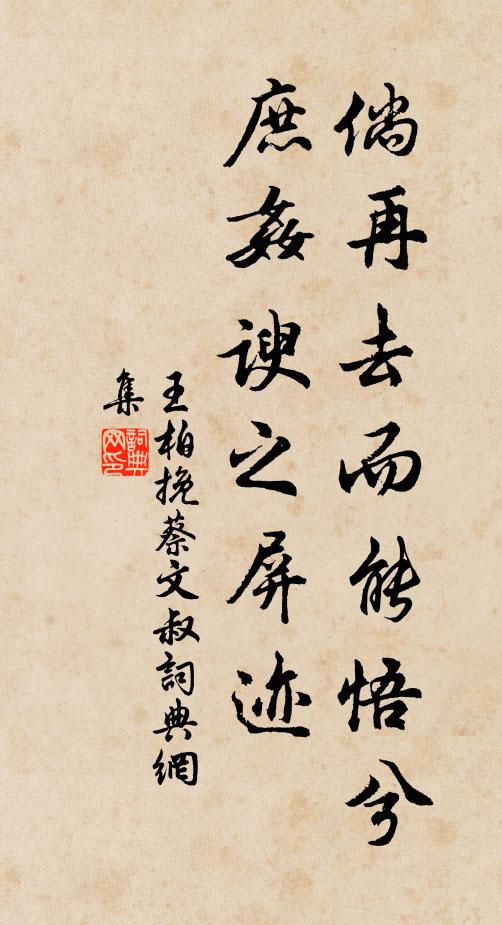 倘再去而能悟兮
庶姦諛之屏迹
王柏挽蔡文叔詞典網
集
詞典網印